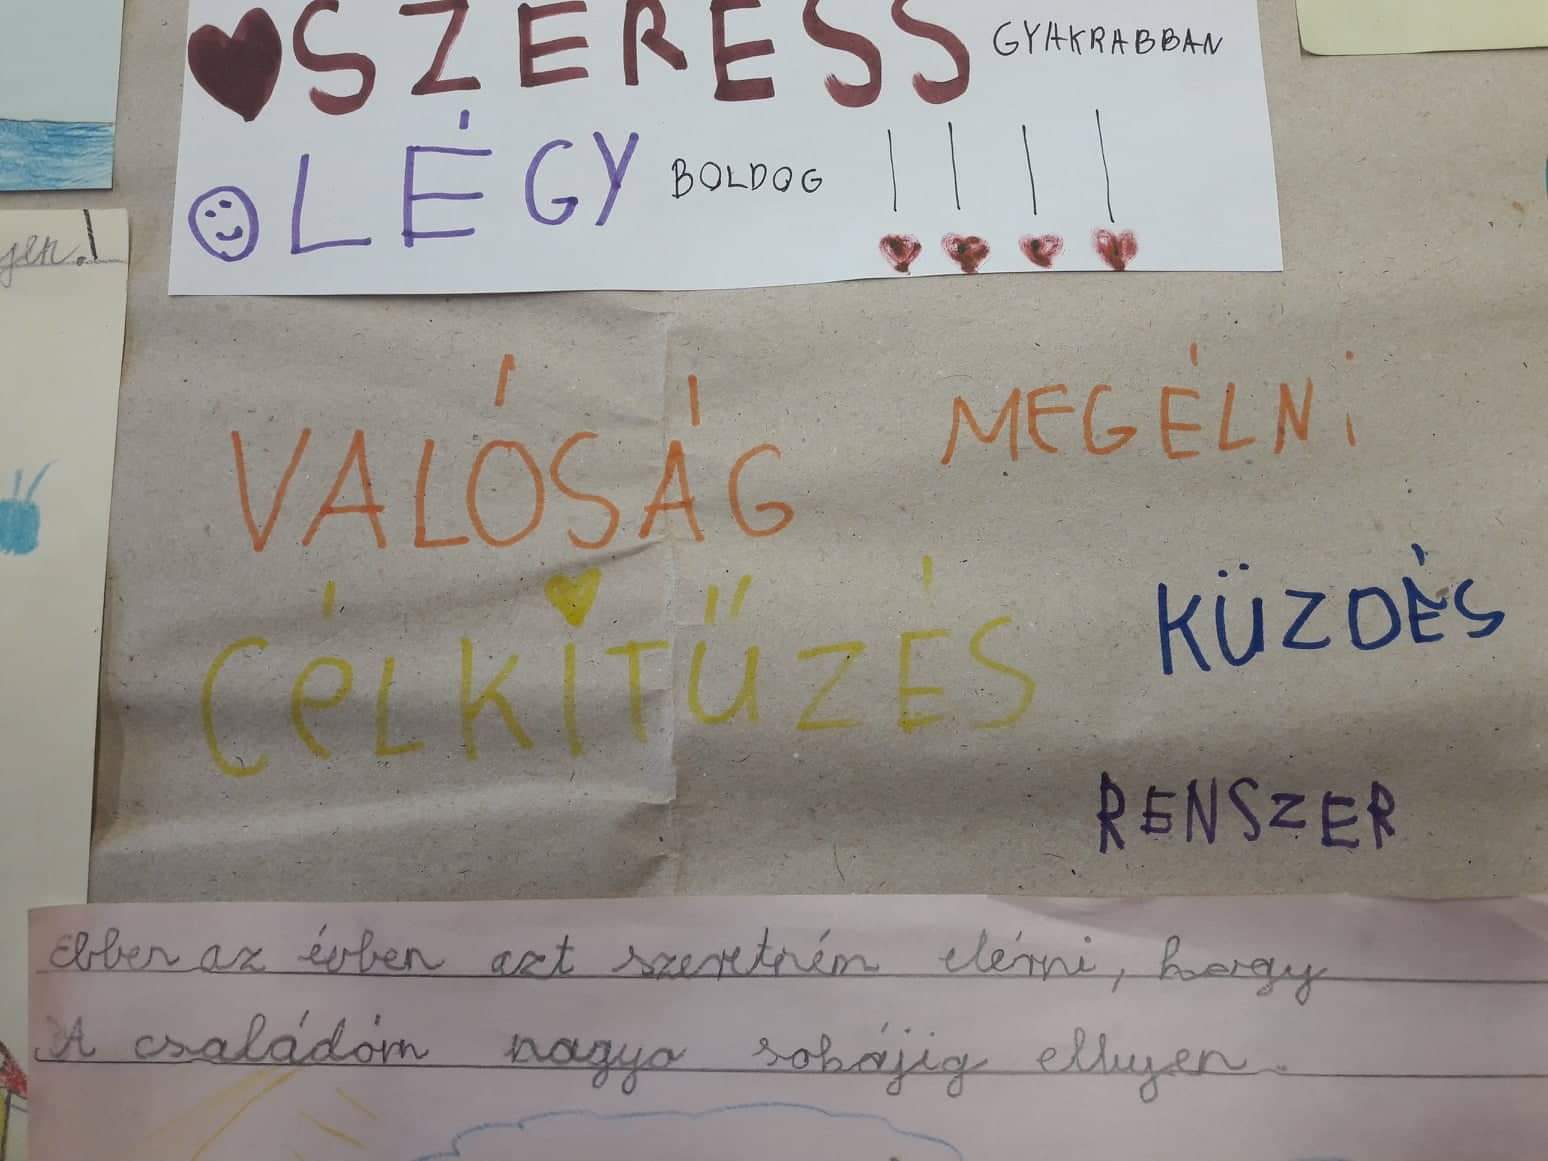 SZERESS GYAKRABBAN
LÉGY BOLDOG !!!!
yen.!
VALÓSÁG
MEGÉLNI
CÉLKITŰZÉS
KÜZDÉS
RENSZER
Ebben az évben azt szeretném elérni, hogy
A családóm nagyo sokájig ellyen.